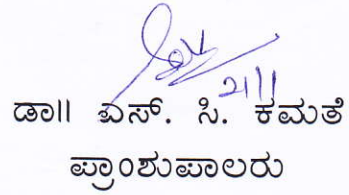 21/1
ಡಾ|| ಎಸ್. ಸಿ. ಕಮತೆ
ಪ್ರಾಂಶುಪಾಲರು